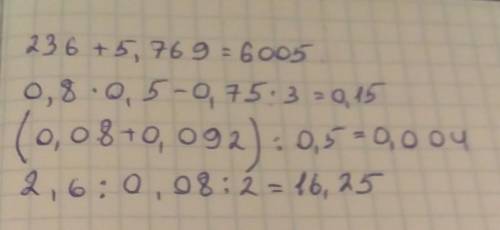 236 + 5,769 = 6005
0,8 · 0,5 - 0,75 : 3 = 0,15
(0,08 + 0,092) : 0,5 = 0,004
2,6 : 0,08 : 2 = 16,25